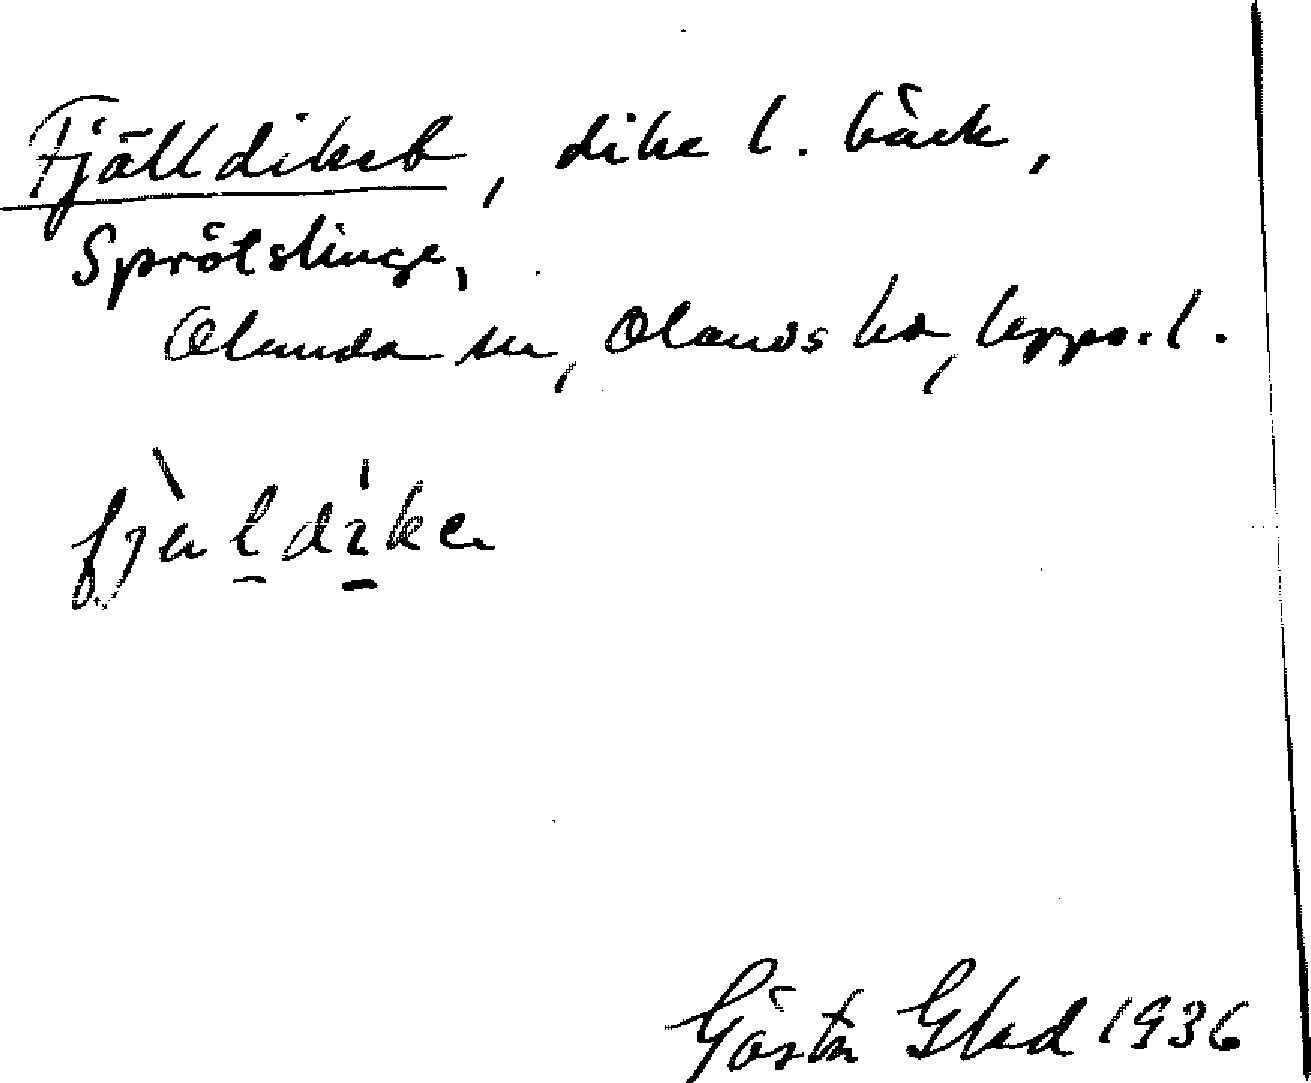 Fjälldiket, dike l. bäck,
Sprötslinge,
Olanda sn, Olands hd, Upps. l.
fjäldike
Gösta Glad 1936